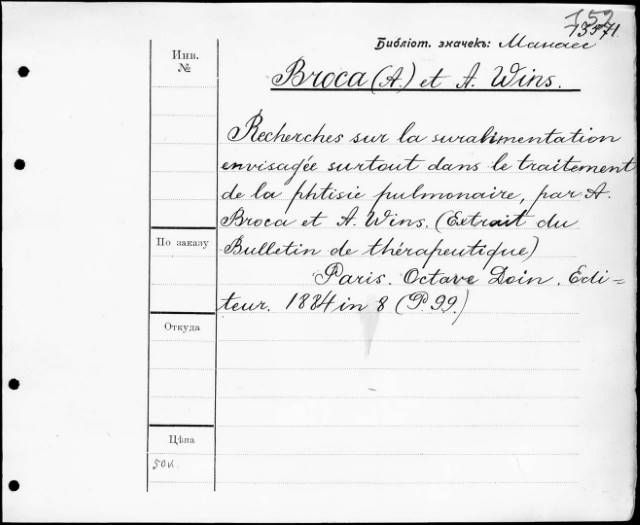 752
13571
Библіот. значекъ: Манасс
Инв.
№
Broca (A.) et A. Wins.
Recherches sur la suralimentation
envisagée surtout dans le traitement
de la phtisie pulmonaire, par A.
Broca et A. Wins. (Extrait du
По заказу
Bulletin de thérapeutique)
Paris. Octave Doin. Edi=
teur. 1884 in 8 (P. 99.)
Откуда
Цѣна
50к.